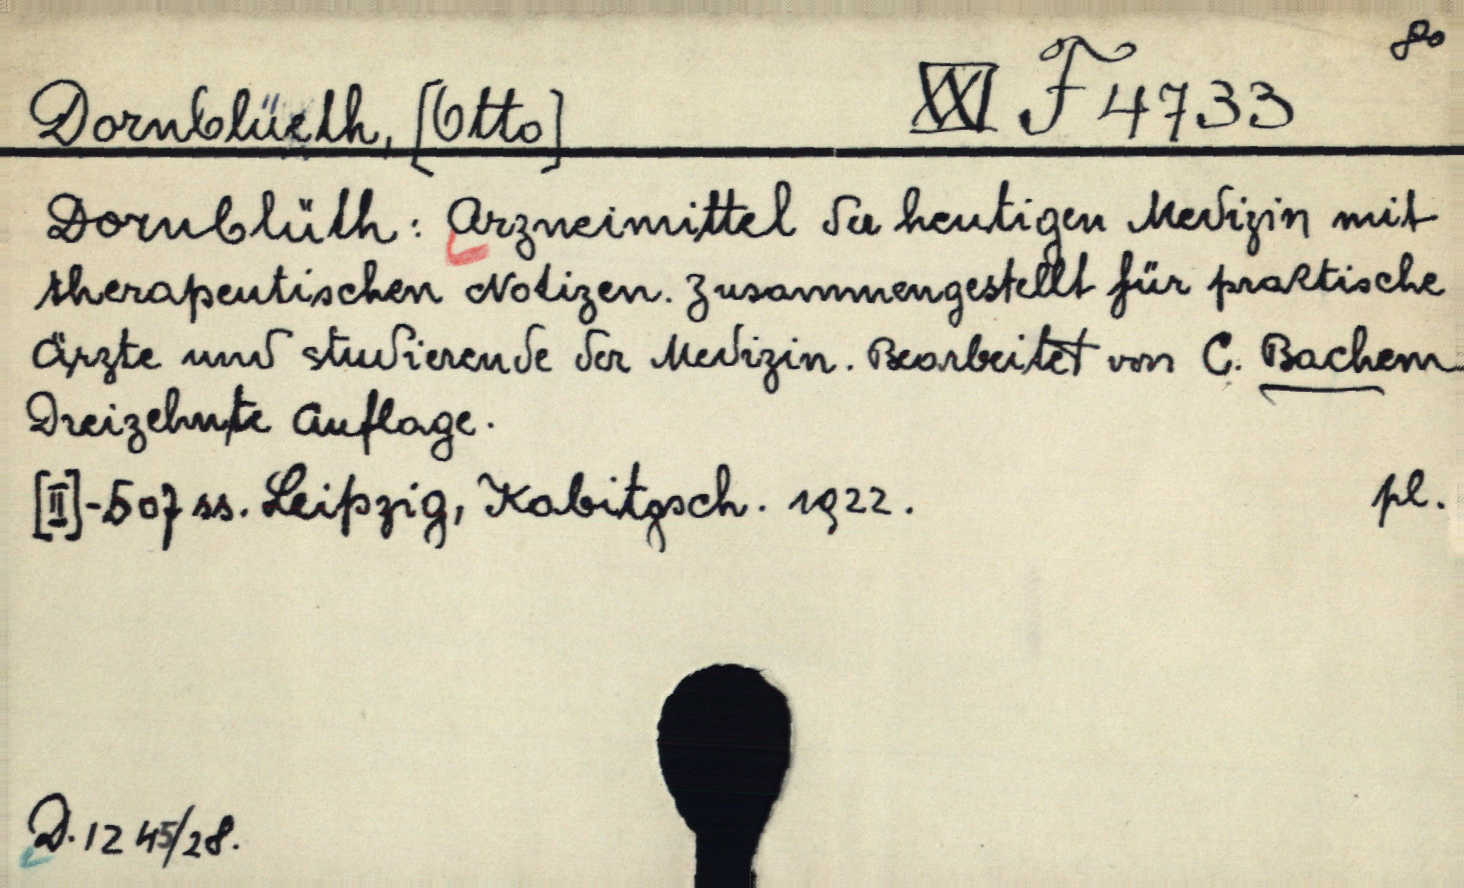 8o
Dornblüth, [Otto] XXI F 4733
Dornblüth: Arzneimittel der heutigen Medizin mit
therapeutischen Notizen. Zusammengestellt für praktische
Ärzte und studierende der Medizin. Bearbeitet von C. Bachem
Dreizehnte Auflage.
[II]-507 ss. Leipzig, Kabitzsch. 1922. pl.
D. 1245/28.